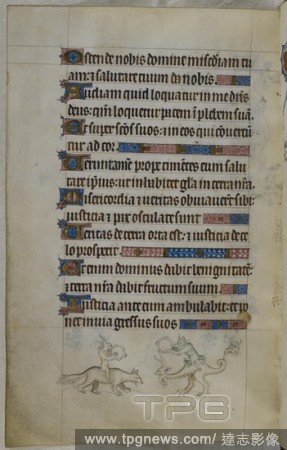 Ostende nobis domine mĩscd̃iam tu
am: ⁊ salutare tuum da nobis.
Audiam quid loquatur in me dñs
deus: qm̃ loquetur pacem ĩ plebem suã.
Et super scõs suos: ⁊ in eos qui cõuertũ
tur ad cor.
Verumtamẽ prope timẽtes eum salu
tare ip̃ius: ut inhabitet gl̃a in terra nr̃a.
Misericordia ⁊ ueritas obuiauerũt sibi:
iusticia ⁊ pax osculate sunt
Veritas de terra orta est: ⁊ iusticia de ce
lo prospexit.
Etenim dominus dabit benignitatẽ:
⁊ terra nr̃a dabit fructum suum.
Iusticia ante eum ambulabit: et po
net in uia gressus suos
TPG
www.tpgnews.com/ 達志影像